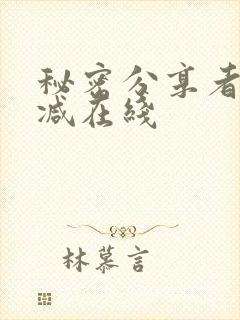 秘密分享者
减在綫
林慕言